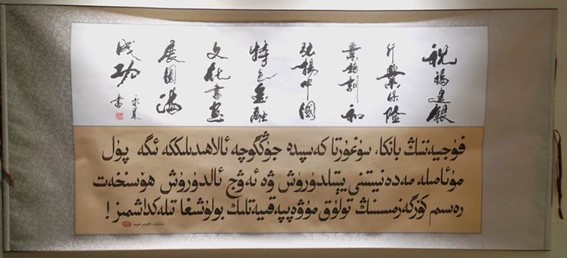 祝福建银
行業保險
業 和
弘揚中國
特色金融
文化書畫
展圓滿
成功
書
فۇجيەننىڭ بانكا، سۇغۇرتا كەسىپىدە جۇڭگوچە ئالاھىدىلىككە ئىگە پۇل
مۇئامىلە مەدەنىيىتىنى يېتىلدۈرۈش ۋە ئەۋج ئالدۇرۇش ھۆسنخەت
رەسىم كۆرگەزمىسىنىڭ تولۇق مۇۋەپپەقىيەتلىك بولۇشىغا تىلەكداشمىز!